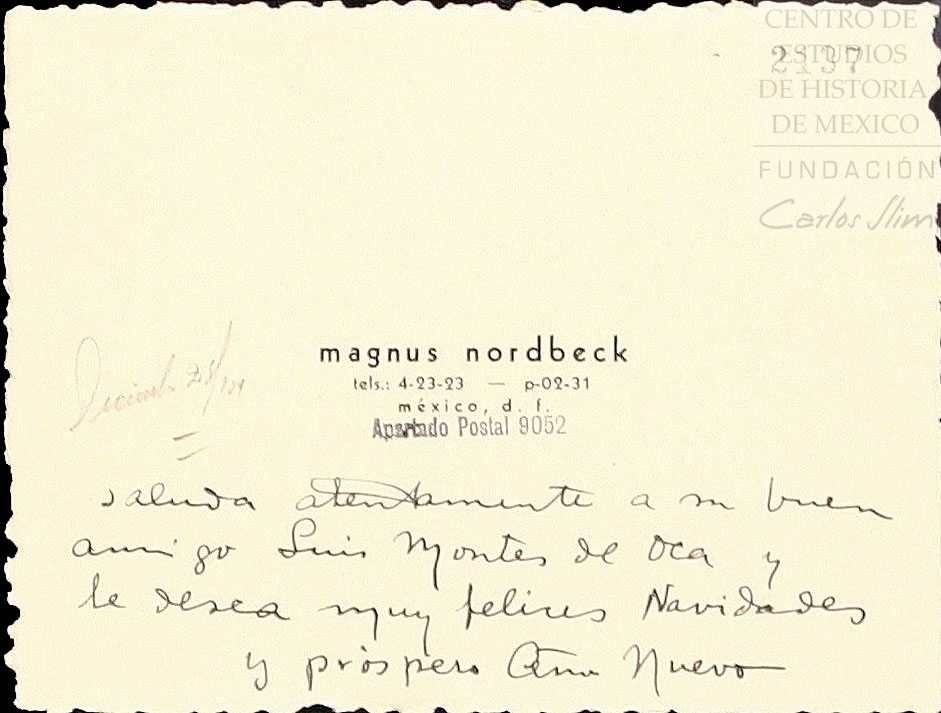 CENTRO DE
ESTUDIOS
DE HISTORIA
DE MEXICO
FUNDACIÓN
Carlos Slim
2137
magnus nordbeck
tels.: 4-23-23 — p-02-31
méxico, d. f.
Apartado Postal 9052
saluda atentamente a su buen
amigo Luis Montes de Oca y
le desea muy felices Navidades
y próspero Año Nuevo